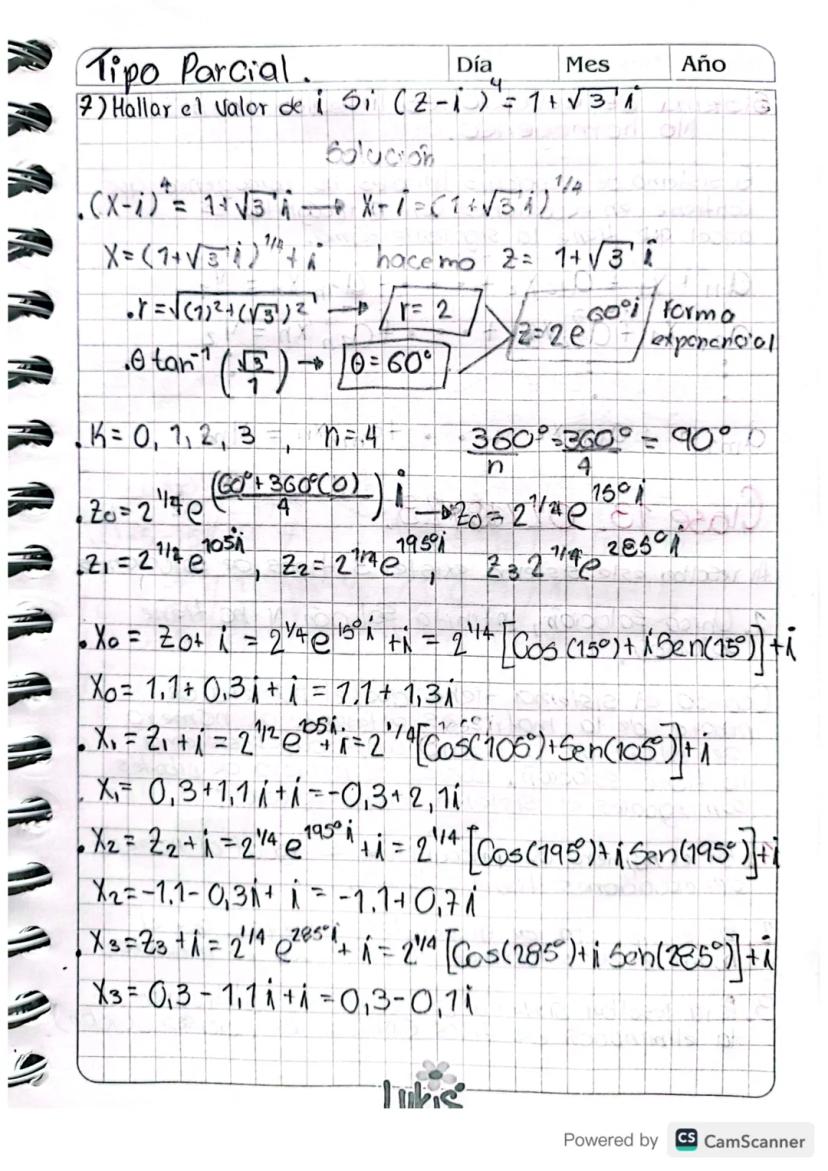 Tipo Parcial.
Día Mes Año
7) Hallar el valor de i si (z-i)⁴ = 1+√3 i
Solución
. (x-i)⁴ = 1+√3 i → x-i = (1+√3 i)^1/4
x = (1+√3 i)^1/4 + i hacemo z = 1+√3 i
. r = √(1)²+(√3)² → r = 2
z = 2e^60°i forma exponencial
. θ tan⁻¹ (√3/1) → θ = 60°
. K = 0, 1, 2, 3 , n = 4 360°/n = 360°/4 = 90°
. z₀ = 2^1/4 e^((60°+360°(0))/4) i → z₀ = 2^1/4 e^15°i
. z₁ = 2^1/4 e^105i , z₂ = 2^1/4 e^195°i , z₃ 2^1/4 e^285°i
. x₀ = z₀ + i = 2^1/4 e^15°i + i = 2^1/4 [Cos (15°) + i Sen(15°)] + i
x₀ = 1,1 + 0,3i + i = 1,1 + 1,3i
. x₁ = z₁ + i = 2^1/2 e^105i + i = 2^1/4 [Cos(105°) + Sen(105°)] + i
x₁ = 0,3 + 1,1i + i = -0,3 + 2,1i
. x₂ = z₂ + i = 2^1/4 e^195°i + i = 2^1/4 [Cos(195°) + i Sen(195°)] + i
x₂ = -1,1 - 0,3i + i = -1,1 + 0,7i
. x₃ = z₃ + i = 2^1/4 e^285°i + i = 2^1/4 [Cos(285°) + i Sen(285°)] + i
x₃ = 0,3 - 1,1i + i = 0,3 - 0,1i
Lukis
Powered by CS CamScanner